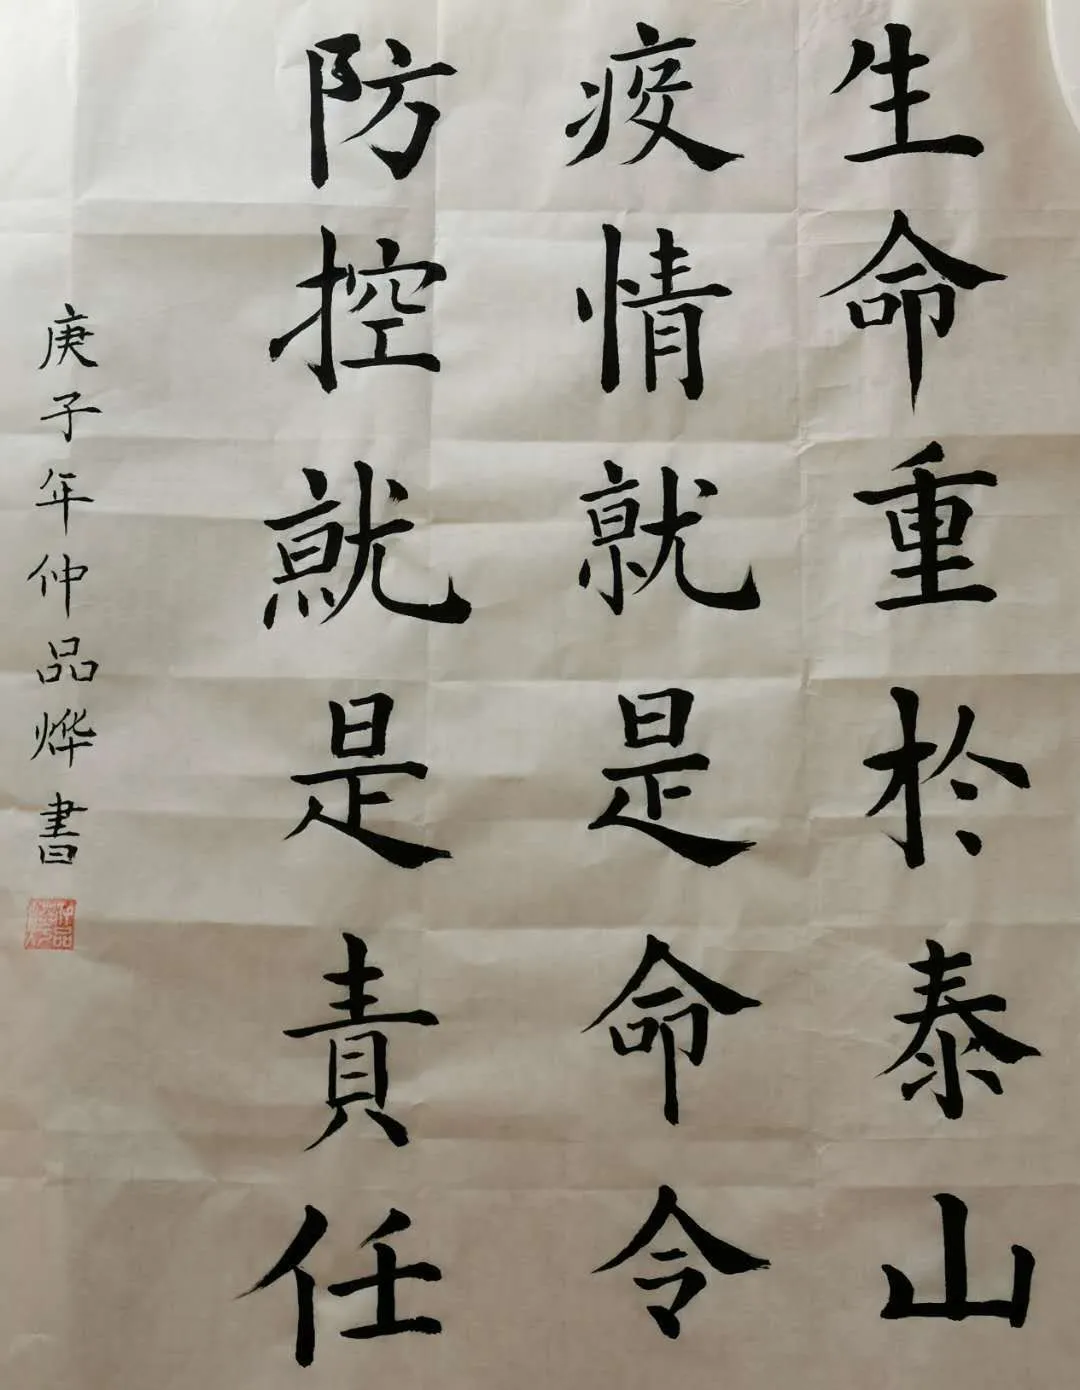 生命重於泰山
疫情就是命令
防控就是責任
庚子年仲品烨書